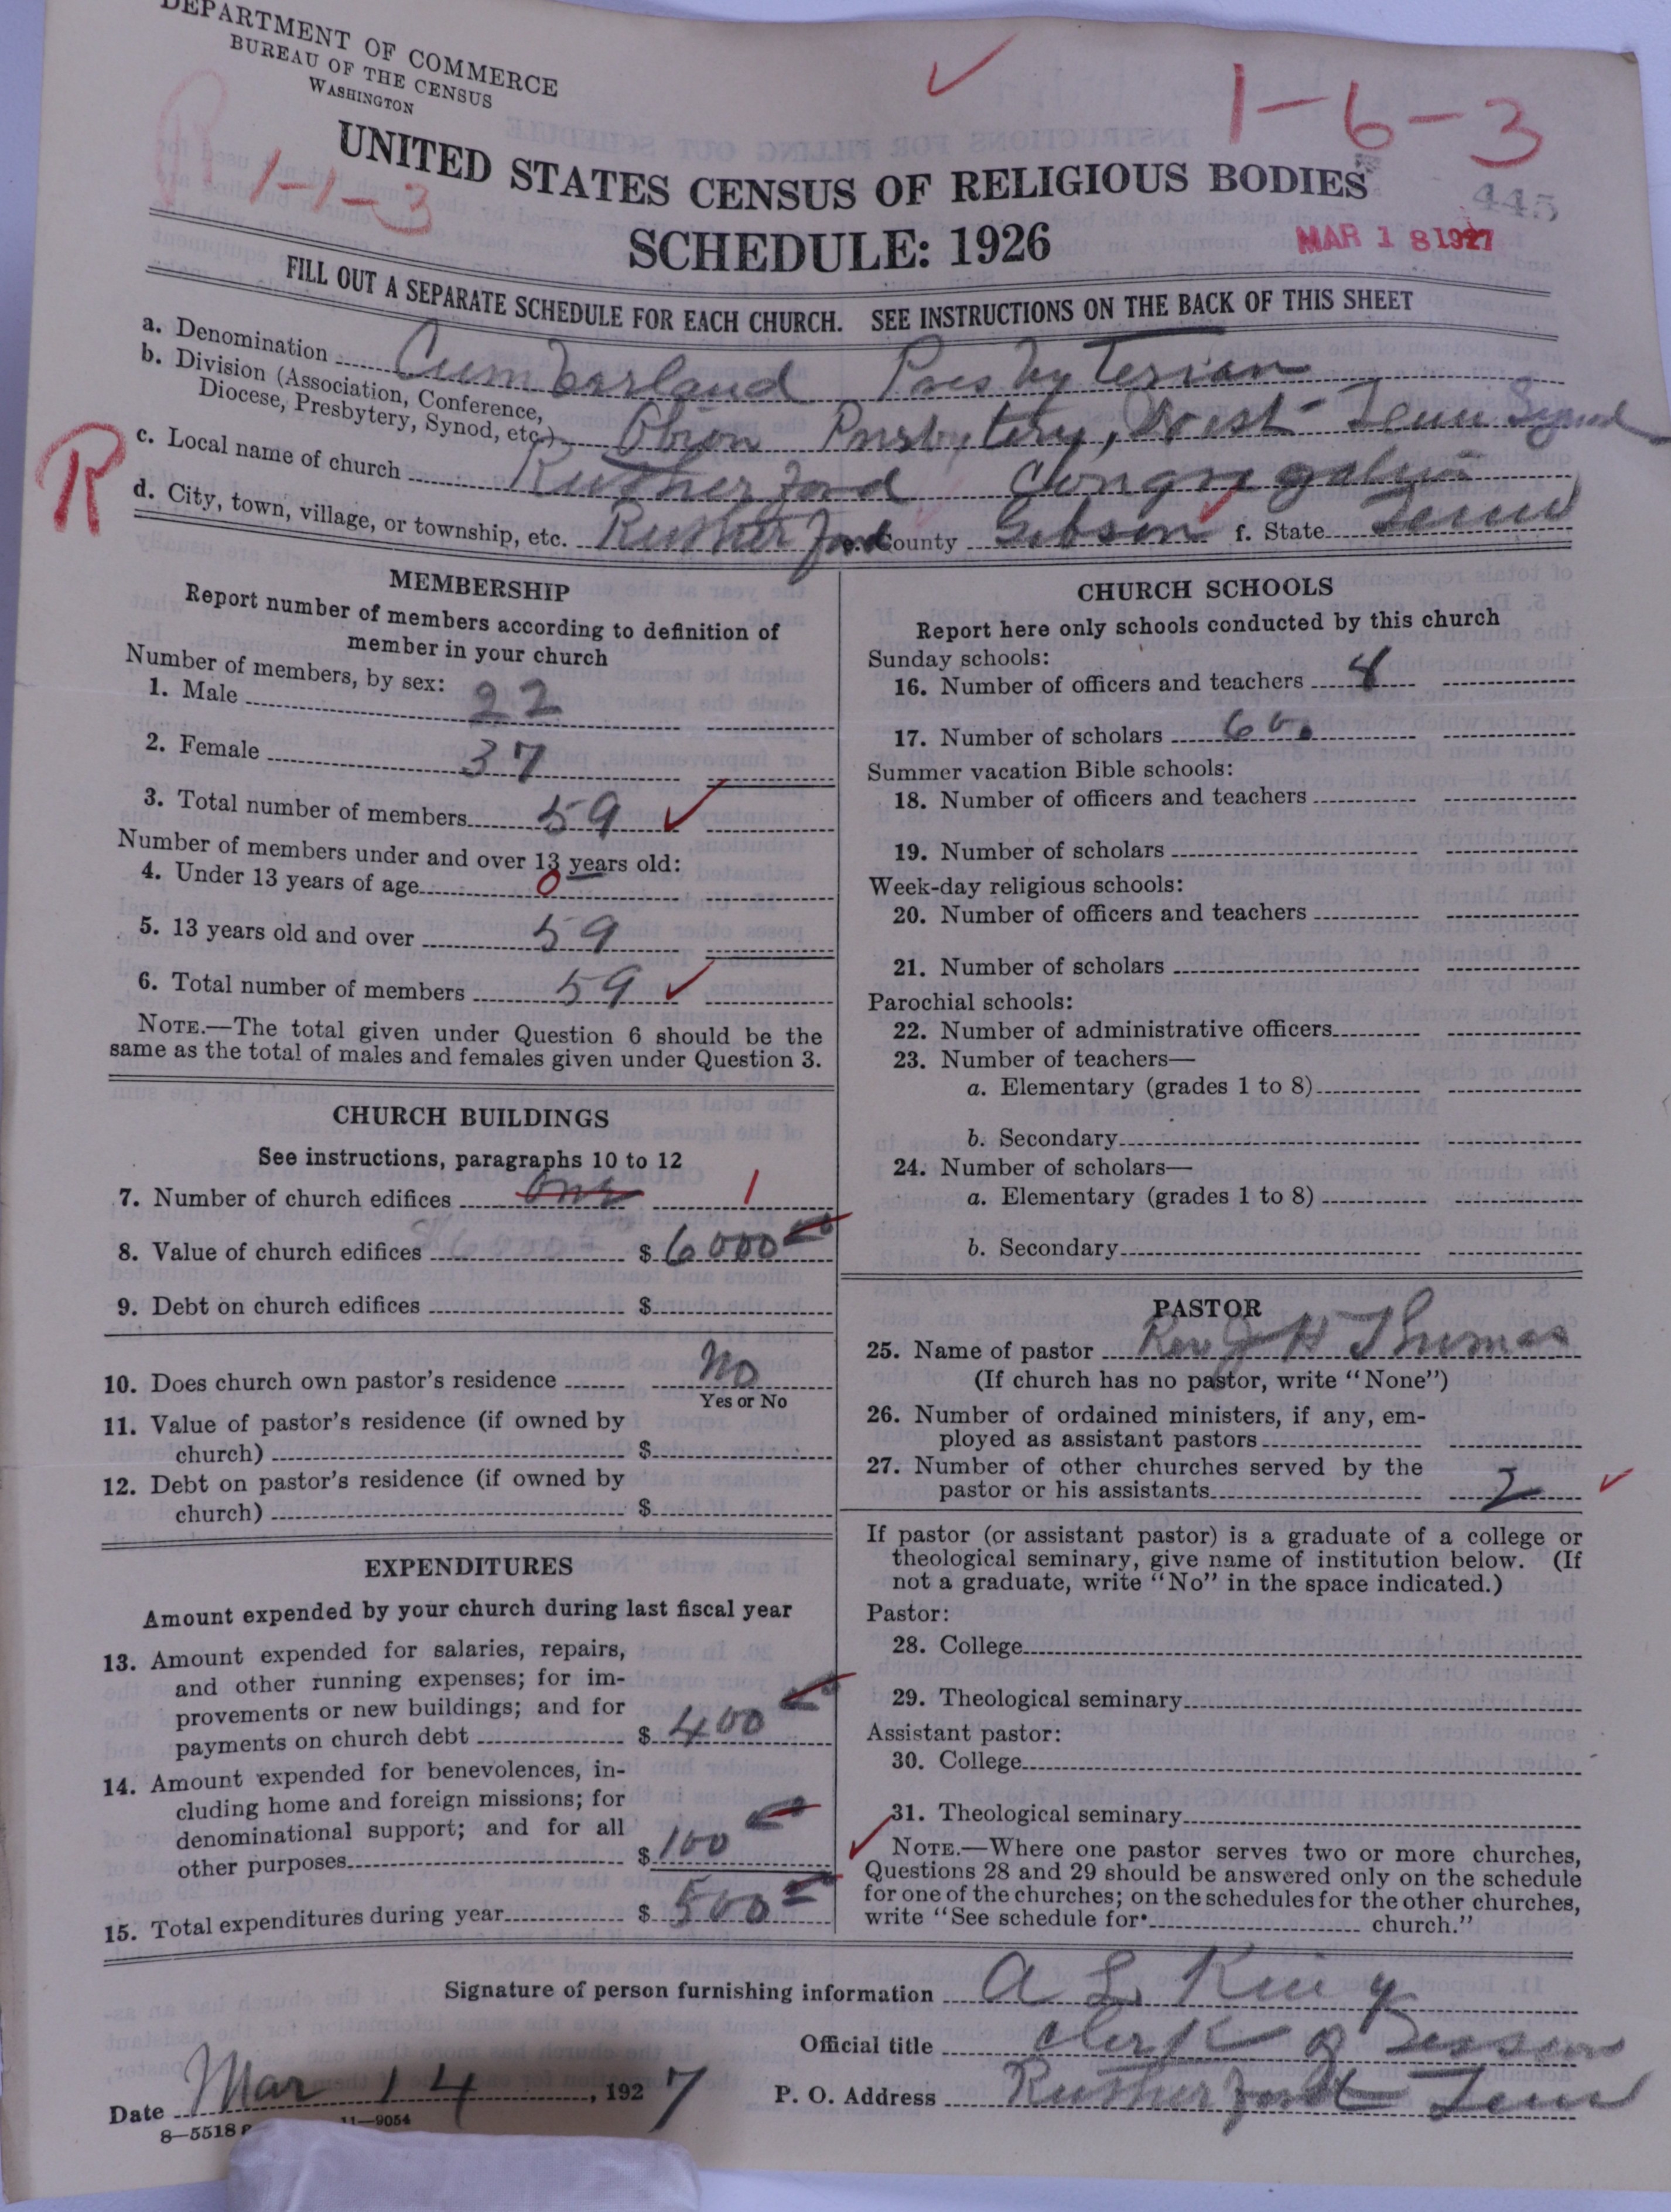 DEPARTMENT OF COMMERCE
BUREAU OF THE CENSUS
WASHINGTON
1-6-3
R 1-1-3
UNITED STATES CENSUS OF RELIGIOUS BODIES
445
SCHEDULE: 1926
MAR 18 1927
FILL OUT A SEPARATE SCHEDULE FOR EACH CHURCH. SEE INSTRUCTIONS ON THE BACK OF THIS SHEET
a. Denomination Cumberland Presbyterian
b. Division (Association, Conference,
Diocese, Presbytery, Synod, etc.) Obion Presbytery, West Tenn Synod
R
c. Local name of church Rutherford Congregation
d. City, town, village, or township, etc. Rutherford e. County Gibson f. State Tenn
MEMBERSHIP
Report number of members according to definition of
member in your church
Number of members, by sex:
1. Male 22
2. Female 37
3. Total number of members 59
Number of members under and over 13 years old:
4. Under 13 years of age 0
5. 13 years old and over 59
6. Total number of members 59
NOTE.—The total given under Question 6 should be the
same as the total of males and females given under Question 3.
CHURCH BUILDINGS
See instructions, paragraphs 10 to 12
7. Number of church edifices One 1
8. Value of church edifices $ 6000 00
9. Debt on church edifices $
10. Does church own pastor's residence No
Yes or No
11. Value of pastor's residence (if owned by
church) $
12. Debt on pastor's residence (if owned by
church) $
EXPENDITURES
Amount expended by your church during last fiscal year
13. Amount expended for salaries, repairs,
and other running expenses; for im-
provements or new buildings; and for
payments on church debt $ 400 00
14. Amount expended for benevolences, in-
cluding home and foreign missions; for
denominational support; and for all
other purposes $ 100 00
15. Total expenditures during year $ 500 00
CHURCH SCHOOLS
Report here only schools conducted by this church
Sunday schools:
16. Number of officers and teachers 8
17. Number of scholars 60
Summer vacation Bible schools:
18. Number of officers and teachers
19. Number of scholars
Week-day religious schools:
20. Number of officers and teachers
21. Number of scholars
Parochial schools:
22. Number of administrative officers
23. Number of teachers—
a. Elementary (grades 1 to 8)
b. Secondary
24. Number of scholars—
a. Elementary (grades 1 to 8)
b. Secondary
PASTOR
25. Name of pastor Rev J H Thomas
(If church has no pastor, write "None")
26. Number of ordained ministers, if any, em-
ployed as assistant pastors
27. Number of other churches served by the
pastor or his assistants 2
If pastor (or assistant pastor) is a graduate of a college or
theological seminary, give name of institution below. (If
not a graduate, write "No" in the space indicated.)
Pastor:
28. College
29. Theological seminary
Assistant pastor:
30. College
31. Theological seminary
NOTE.—Where one pastor serves two or more churches,
Questions 28 and 29 should be answered only on the schedule
for one of the churches; on the schedules for the other churches,
write "See schedule for church."
Signature of person furnishing information A L King
Official title Clerk of Session
Date Mar 14, 1927 P. O. Address Rutherford Tenn
8—5518 11—9054